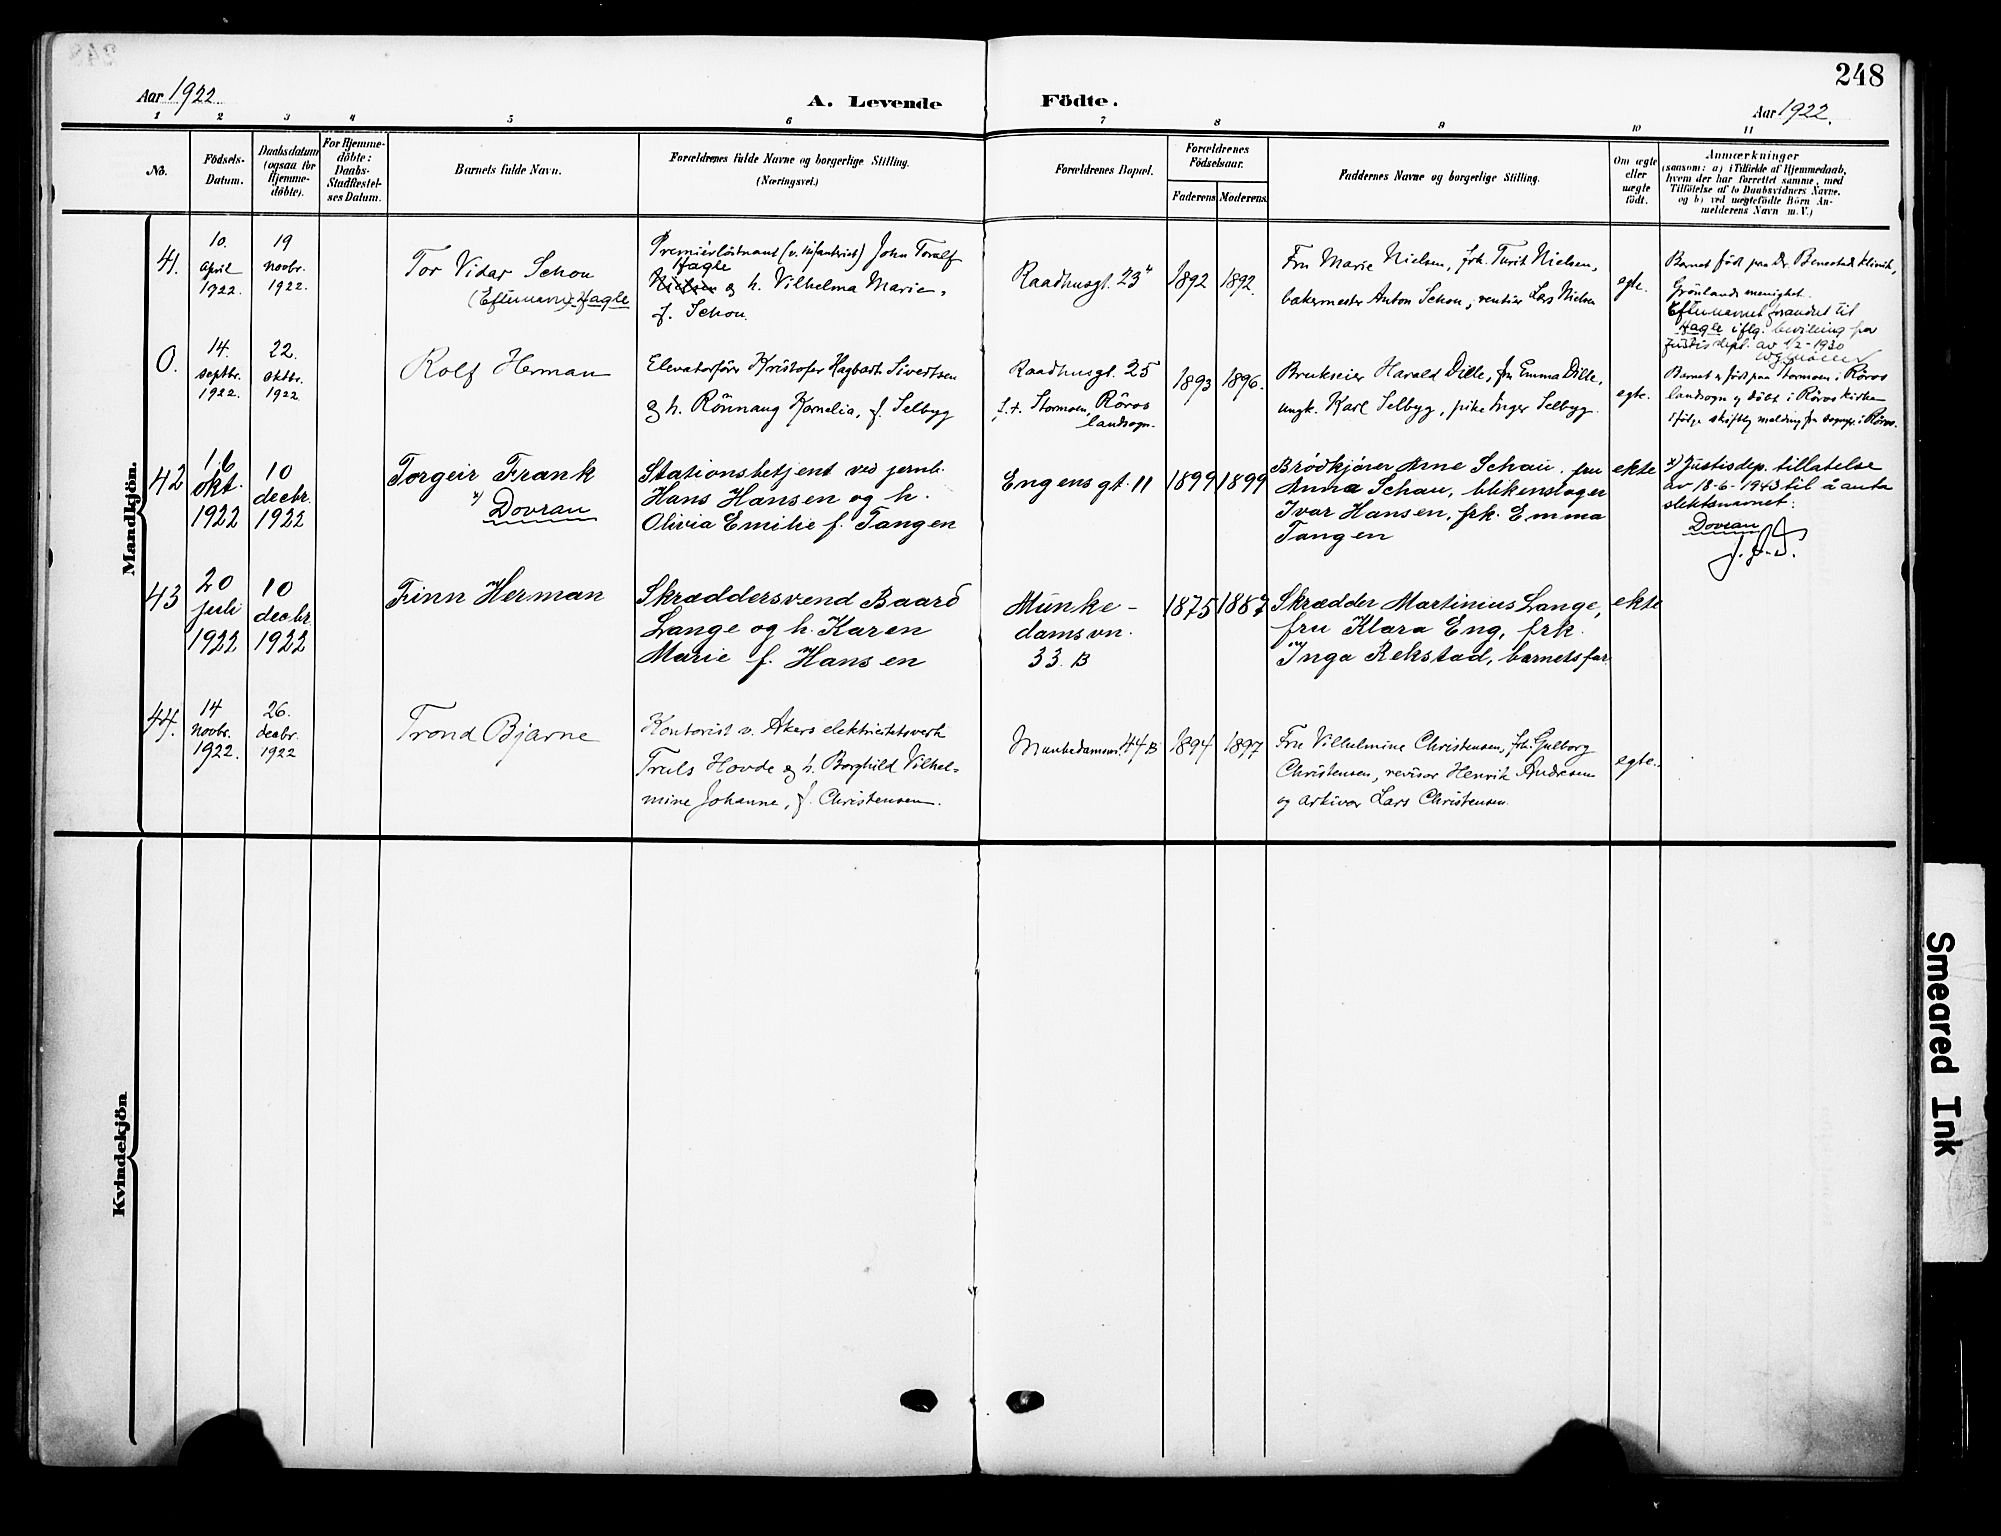 248
Aar 1922.
A. Levende Födte.
Aar 1922.
1 2 3 4 5 6 7 8 9 10 11
No.
Födsels-
Datum.
Daabsdatum
(ogsaa for
Hjemme-
döbte).
For Hjemme-
döbte:
Daabs-
Stadfæstel-
ses Datum.
Barnets fulde Navn.
Forældrenes fulde Navne og borgerlige Stilling.
(Næringsvei.)
Forældrenes Bopæl.
Forældrenes
Födselsaar.
Faderens Moderens
Faddernes Navne og borgerlige Stilling.
Om ægte
eller
uægte
födt.
Anmærkninger
(saasom: a) i Tilfælde af Hjemmedaab,
hvem der har forrettet samme, med
Tilföielse af to Daabsvidners Navne,
og b) ved uægtefödte Börn An-
melderens Navn m. V.)
Mandkjön.
41.
10.
april
1922.
19
novbr.
1922.
Tor Vidar Schou
(Efternavn): Hagle
Premierløitnant (v. infanteriet) John Toralf
Hagle
Nielsen og h. Vilhelma Marie,
f. Schou.
Raadhusgt. 23"
1892
1892.
Fru Marie Nielsen, frk. Turit Nielsen,
bakermester Anton Schou, rentier Lars Nielsen
egte.
Barnet født paa Dr. Benestads klinik,
Grønlands menighet.
Efternavnet forandret til
Hagle iflg. bevilling fra
Justisdept. av 1/2-1930
0.
14.
septbr.
1922.
22.
oktbr.
1922
Rolf Herman
Elevatorfører Kristofer Hagbarth Sivertsen
og h. Rönnaug Kornelia, f. Selbyg
Raadhusgt. 25
f. t. Stormoen, Röros
landsogn.
1893
1896.
Brukseier Harald Dille, fru Emma Dille,
ungk. Karl Selbyg, pike Inger Selbyg.
egte.
Barnet er født paa Stormoen i Röros
landsogn og døbt i Röros kirke
ifølge skriftlig melding fra sognepr. i Röros.
42
16
okt.
1922
10
decbr.
1922
Torgeir Frank
x) Dovran
Stationsbetjent ved jernb.
Hans Hansen og h.
Olivia Emilie f. Tangen
Engens gt. 11
1899
1899
Brödkjörer Arne Schau, fru
Anna Schau, blikenslager
Ivar Hansen, frk. Emma
Tangen
ekte
x) Justisdep. tillatelse
av 18-6-1943 til å anta
slektsnavnet:
Dovran
43
20
juli
1922
10
decbr.
1922
Finn Herman
Skræddersvend Baard
Lange og h. Karen
Marie f. Hansen
Munke-
damsvn.
33. B
1875
1887
Skrædder Martinius Lange,
fru Klara Eng, frk.
Inga Rekstad, barnets far
ekte
44.
14
novbr.
1922.
26.
decbr.
1922
Trond Bjarne
Kontorist v. Akers elektricitetsverk
Truls Hovde og h. Borghild Vilhel-
mine Johanne, f. Christensen.
Munkedamsvn. 44 B
1894
1897
Fru Vilhelmine Christensen, frk. Gulborg
Christensen, revisor Henrik Andresen
og arkivar Lars Christensen.
egte.
Kvindekjön
Smeared Ink